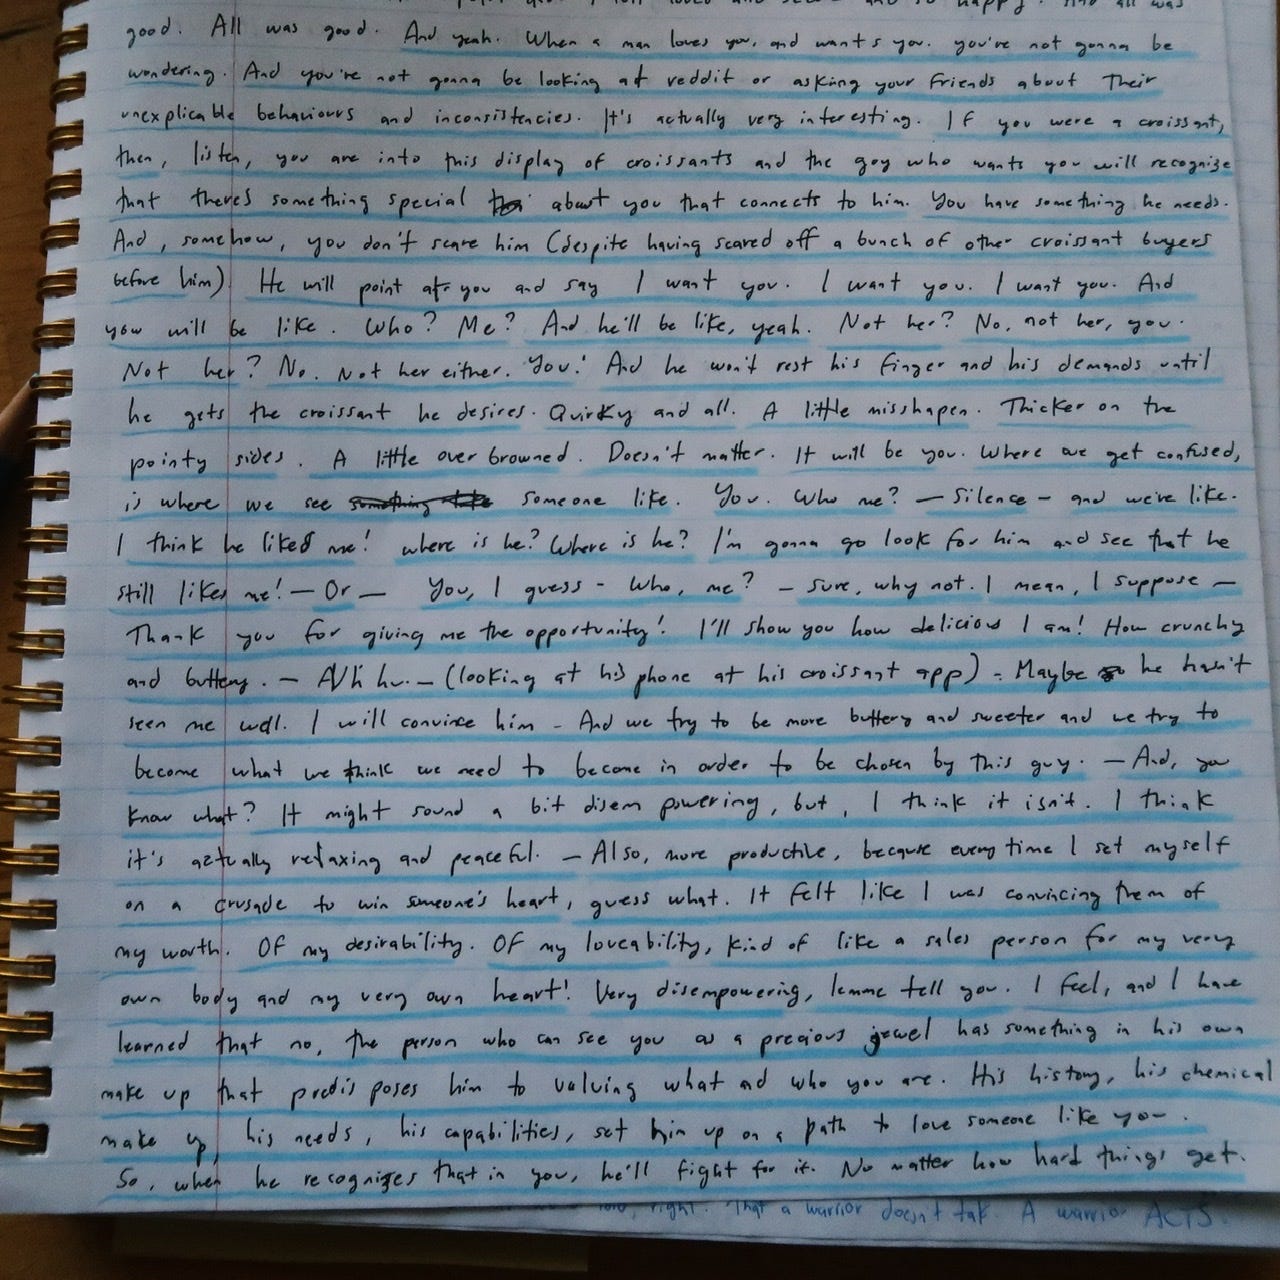 happy. And all was
good. All was good. And yeah. When a man loves you, and wants you. you're not gonna be
wondering. And you're not gonna be looking at reddit or asking your friends about their
unexplicable behaviours and inconsistencies. It's actually very interesting. If you were a croissant,
then, listen, you are into this display of croissants and the guy who wants you will recognize
that there's something special about you that connects to him. You have something he needs.
And, somehow, you don't scare him (despite having scared off a bunch of other croissant buyers
before him) He will point at you and say I want you. I want you. I want you. And
you will be like. Who? Me? And he'll be like, yeah. Not her? No, not her, you.
Not her? No. Not her either. You! And he won't rest his finger and his demands until
he gets the croissant he desires. Quirky and all. A little misshapen. Thicker on the
pointy sides. A little over browned. Doesn't matter. It will be you. Where we get confused,
is where we see someone like. You. Who me? — Silence — and we're like.
I think he liked me! where is he? Where is he? I'm gonna go look for him and see that he
still likes me! — Or — You, I guess - Who, me? — Sure, why not. I mean, I suppose —
Thank you for giving me the opportunity! I'll show you how delicious I am! How crunchy
and buttery. — Ah hu. — (looking at his phone at his croissant app) - Maybe he hasn't
seen me well. I will convince him - And we try to be more buttery and sweeter and we try to
become what we think we need to become in order to be chosen by this guy. — And, you
know what? It might sound a bit disempowering, but, I think it isn't. I think
it's actually relaxing and peaceful. — Also, more productive, because every time I set myself
on a crusade to win someone's heart, guess what. It felt like I was convincing them of
my worth. Of my desirability. Of my loveability, kind of like a sales person for my very
own body and my very own heart! Very disempowering, lemme tell you. I feel, and I have
learned that no, the person who can see you as a precious jewel has something in his own
make up that predisposes him to valuing what and who you are. His history, his chemical
make up, his needs, his capabilities, set him up on a path to love someone like you.
So, when he recognizes that in you, he'll fight for it. No matter how hard things get.
right. That a warrior doesn't talk. A warrior ACTS.